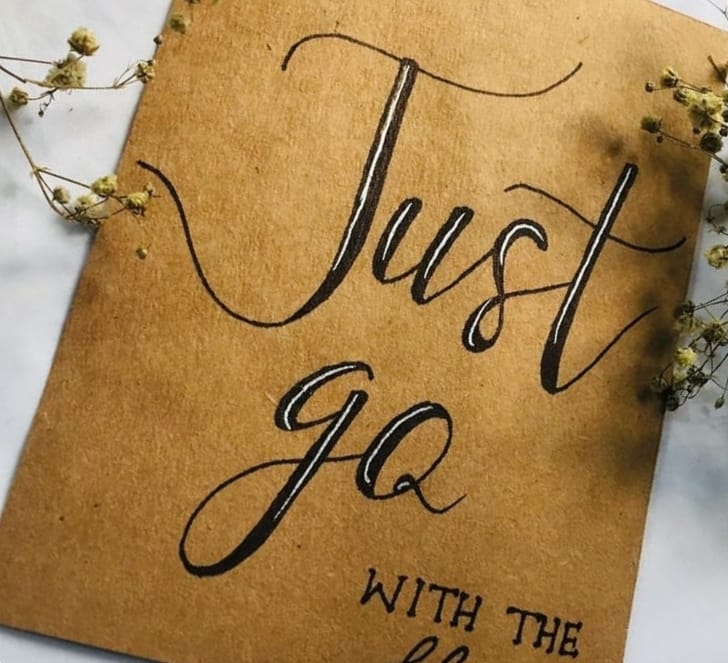 Just
go
WITH THE